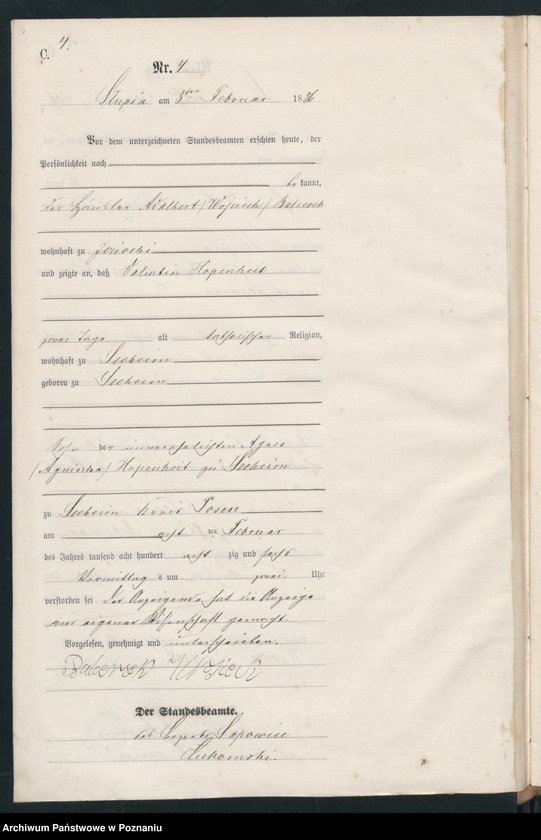 C.
4.
Nr. 4
Słupia am 8ten Februar 1886
Vor dem unterzeichneten Standesbeamten erschien heute, der
Persönlichkeit nach
be kannt,
der Häusler Adalbert (Wojciech)
wohnhaft zu
und zeigte an, daß Valentin Hopenheit
zwei Tage alt katholischer Religion,
wohnhaft zu Seeheim
geboren zu Seeheim
Sohn der unverehelichten Agnes
(Agnieszka) Hopenheit zu Seeheim
zu Seeheim Kreis Posen
am acht ten Februar
des Jahres tausend acht hundert acht zig und sechs
Vormittag s um zwei Uhr
verstorben sei. Der Anzeigende hat die Anzeige
aus eigener Wissenschaft gemacht.
Vorgelesen, genehmigt und unterschrieben.
Der Standesbeamte.
Archiwum Państwowe w Poznaniu